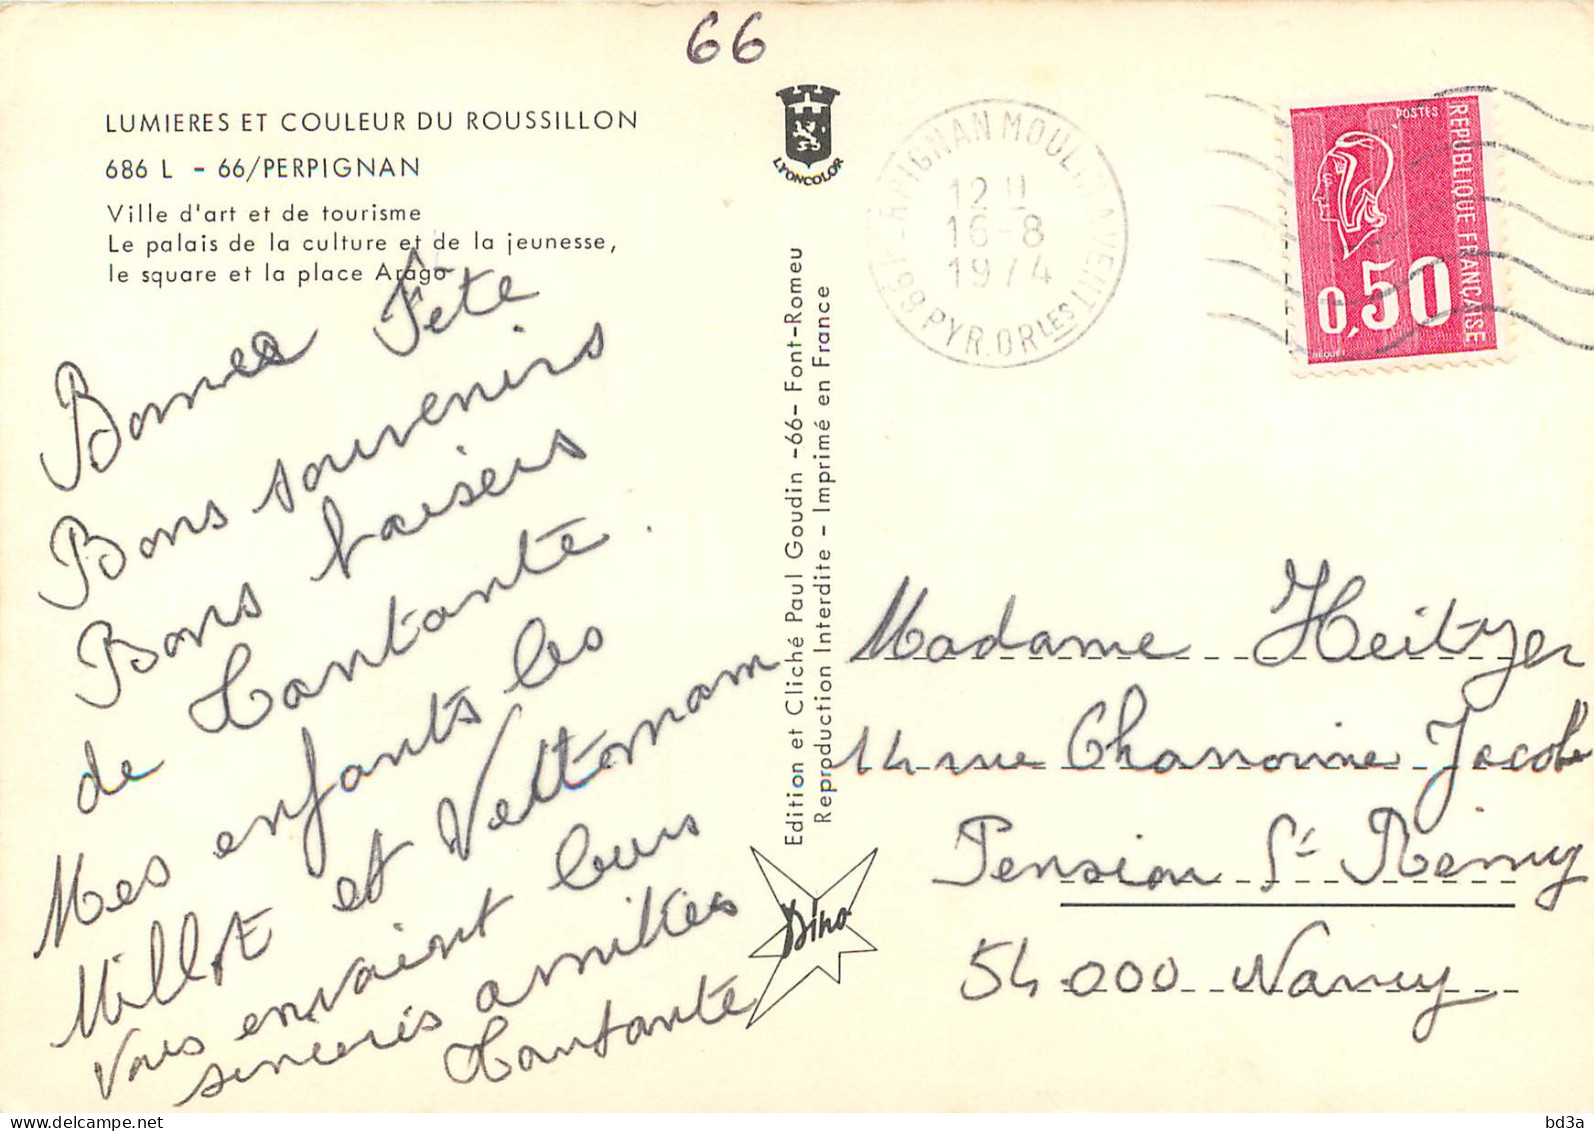 66
LUMIERES ET COULEUR DU ROUSSILLON
686 L - 66/PERPIGNAN
Ville d'art et de tourisme
Le palais de la culture et de la jeunesse,
le square et la place Arago
Bonnes Fête
Bons souvenirs
Bons baisers
de Tantante.
Mes enfants les
Millot et
vous envoient leurs
sincères amitiés
Tantante
LYONCOLOR
Edition et Cliché Paul Goudin -66- Font-Romeu
Reproduction Interdite - Imprimé en France
Dino
12 H
16-8
1974
66 PYR. ORLES
POSTES
REPUBLIQUE FRANÇAISE
0,50
BEQUET
Madame Heitzer
14 rue Chanoine Jacob
Pension St Rémy
54000 Nancy
bd3a